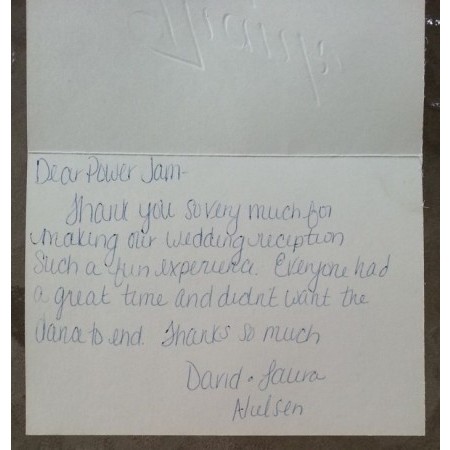 Dear Power Jam-
Thank you so very much for
making our wedding reception
such a fun experience. Everyone had
a great time and didn't want the
dance to end. Thanks so much
David & Laura
Nielsen